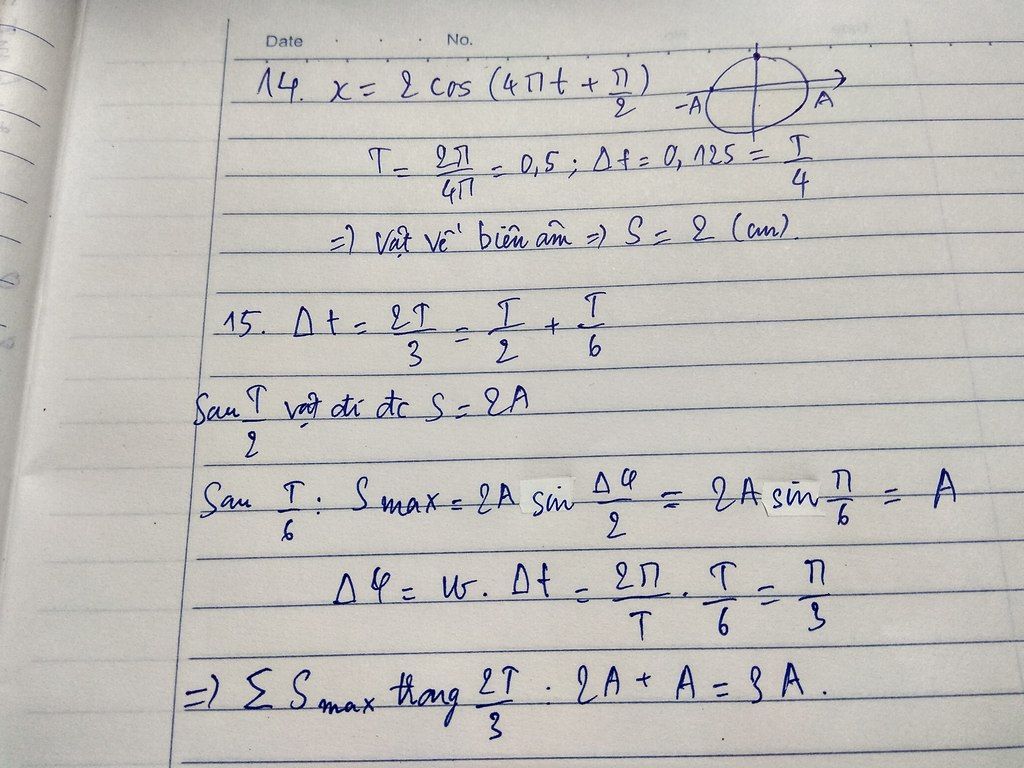 Date No.
14. x = 2 cos (4πt + π/2) -A A
T = 2π/4π = 0,5 ; Δt = 0,125 = T/4
=) Vật về biên âm => S = 2 (cm).
15. Δt = 2T/3 = T/2 + T/6
Sau T/2 vật đi đc S = 2A
Sau T/6 : S max = 2A sin Δφ/2 = 2A sin π/6 = A
Δφ = w. Δt = 2π/T . T/6 = π/3
=) Σ S max trong 2T/3 : 2A + A = 3A.